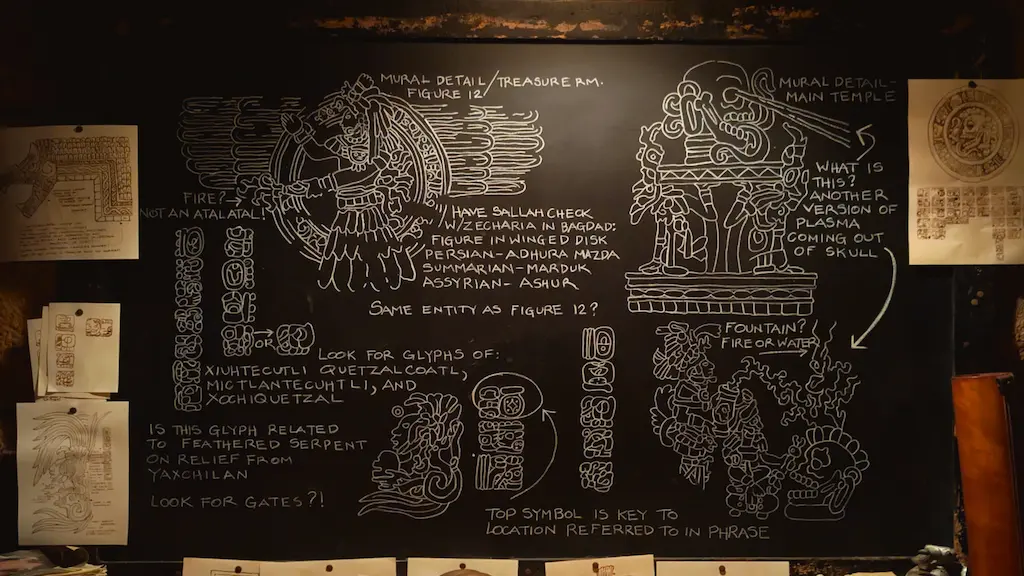 MURAL DETAIL/TREASURE RM.
FIGURE 12
FIRE?→
NOT AN ATALATAL!
HAVE SALLAH CHECK
W/ZECHARIA IN BAGDAD:
FIGURE IN WINGED DISK
PERSIAN-ADHURA MAZDA
SUMMARIAN-MARDUK
ASSYRIAN-ASHUR
SAME ENTITY AS FIGURE 12?
OR
LOOK FOR GLYPHS OF:
XIUHTECUTLI QUETZALCOATL,
MICTLANTECUHTLI, AND
XOCHIQUETZAL
IS THIS GLYPH RELATED
TO FEATHERED SERPENT
ON RELIEF FROM
YAXCHILAN
LOOK FOR GATES?!
TOP SYMBOL IS KEY TO
LOCATION REFERRED TO IN PHRASE
MURAL DETAIL-
MAIN TEMPLE
WHAT IS
THIS?
ANOTHER
VERSION OF
PLASMA
COMING OUT
OF SKULL
FOUNTAIN?
FIRE OR WATER